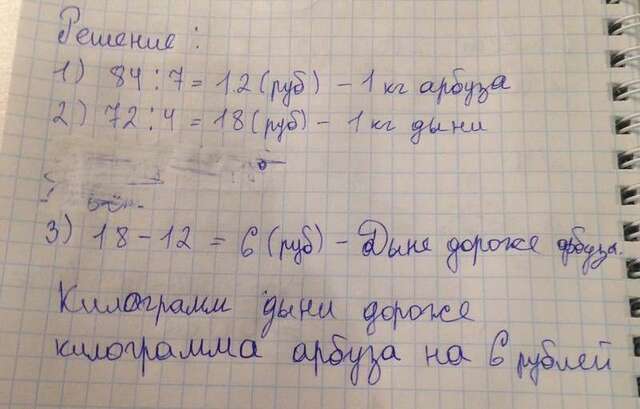 Решение :
1) 84 : 7 = 12 (руб) – 1 кг арбуза
2) 72 : 4 = 18 (руб) – 1 кг дыни
3) 18 – 12 = 6 (руб) – Дыне дороже арбуза.
Килограмм дыни дороже
килограмма арбуза на 6 рублей